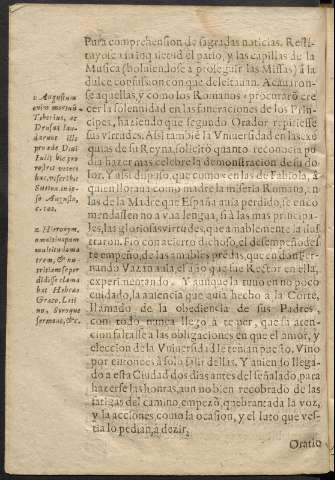 Para comprehension de sagradas noticias. Resti-
tuyose a la quietud el patio, y las capillas de la
Musica (boluiendose a proseguir las Missas) à la
dulce confusion con que deleitauan. Acauaron-
se aquellas, y como los Romanos procuraron cre
cer la solenidad en las funeraciones de los Prin-
cipes, haziendo que segundo Orador repitiesse
sus virtudes. Assi tambiē la Vniuersidad en las ex
quias de su Reyna, solicitò quanto reconocia po
dia hazer mas celebre la demonstracion de su do
lor. Y assi dispuso, que como en las de Fabiola, à
quien lloraua como madre la miseria Romana, en
las de la Madre que España auia perdido, se enco
mendassen no a vna lengua, si à las mas principa-
les, las gloriosas virtudes, que amablemente la ilus
traron. Fio con acierto dichoso, el desempeño des
te empeño, de las amables prēdas, que en don Fer-
nando Vazan auia el año que fue Rector en ella,
experimentando. Y aunque la tuuo en no poco
cuidado, la ausencia que auia hecho a la Corte,
llamado de la obediencia de sus Padres,
con todo nunca llegò à temer, que su aten-
cion faltasse a las obligaciones en que el amor, y
eleccion de la Vniuersidad le tenian puesto. Vino
por entonces à solo salir dellas. Y auiendo llega-
do a esta Ciudad dos dias antes del señalado, para
hazerse las honras, aun no bien recobrado de las
fatigas del camino, empezò, quebrantada la voz,
y la acciones, como la ocasion, y el luto que ves-
tia lo pedian, à dezir.
Oratio
1. Augustum
Tiberius, ac
Drusus lau-
darunt ille
pro æde Diui
Iulij hic pro
rostris veteri
bus, refert hic
Sueton. in ip-
so Augusto,
c. 100.
2. Hieronym.